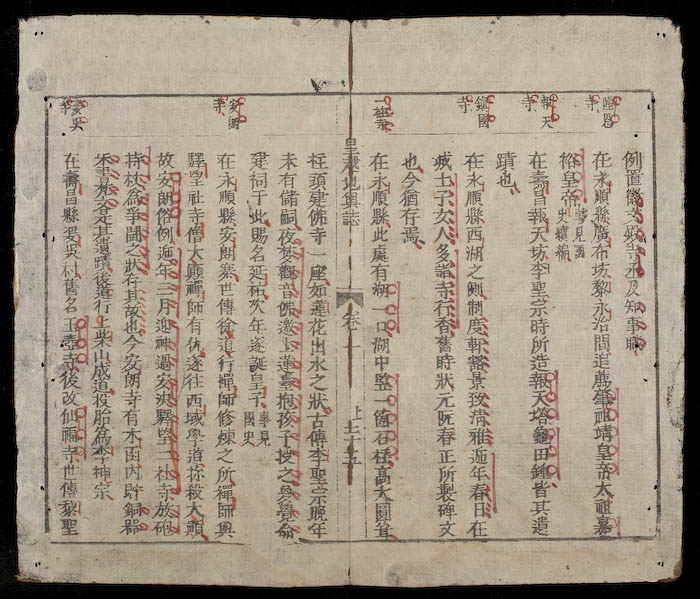 例置徽文殿寺丞及知事職
恩寺
在永順縣廣布坊黎永治間追薦肇祖靖皇帝太祖嘉
裕皇帝 事見國史續編
報天寺
在壽昌報天坊李聖宗時所造報天塔龜田鐘皆其遺
蹟也
鎮國寺
在永順縣西湖之側制度軒豁景致清雅逓年春日在
城士子女人多詣寺行香舊時狀元阮春正所製碑文
也今猶存焉
一柱寺
在永順縣此處有湖一口湖中竪一箇石柱高大圓耸
皇越地輿誌 卷之一 上二十五
柱頭建佛寺一座如蓮花出水之狀古傳李聖宗晚年
未有儲嗣夜夢觀音佛邀上蓮臺抱孩子授之與覺命
建祠于此賜名延祐次年遂誕皇子 事見國史
安朗寺
在永順縣安朗寨世傳徐道行禪師修煉之所禪師與
驛望社寺僧大顛禪師有仇遂往西域學道殺大顛
故安朗俗例逓年三月迎神過安決驛望二社寺放砲
持杖為爭鬪之狀存其故也今安朗寺有木函內貯銅器
朱書梵文皆其遺蹟後道行上柴山成道投胎為李神宗
婆吳寺
在壽昌縣婆吳村舊名玉壼寺後改仙福寺世傳黎聖